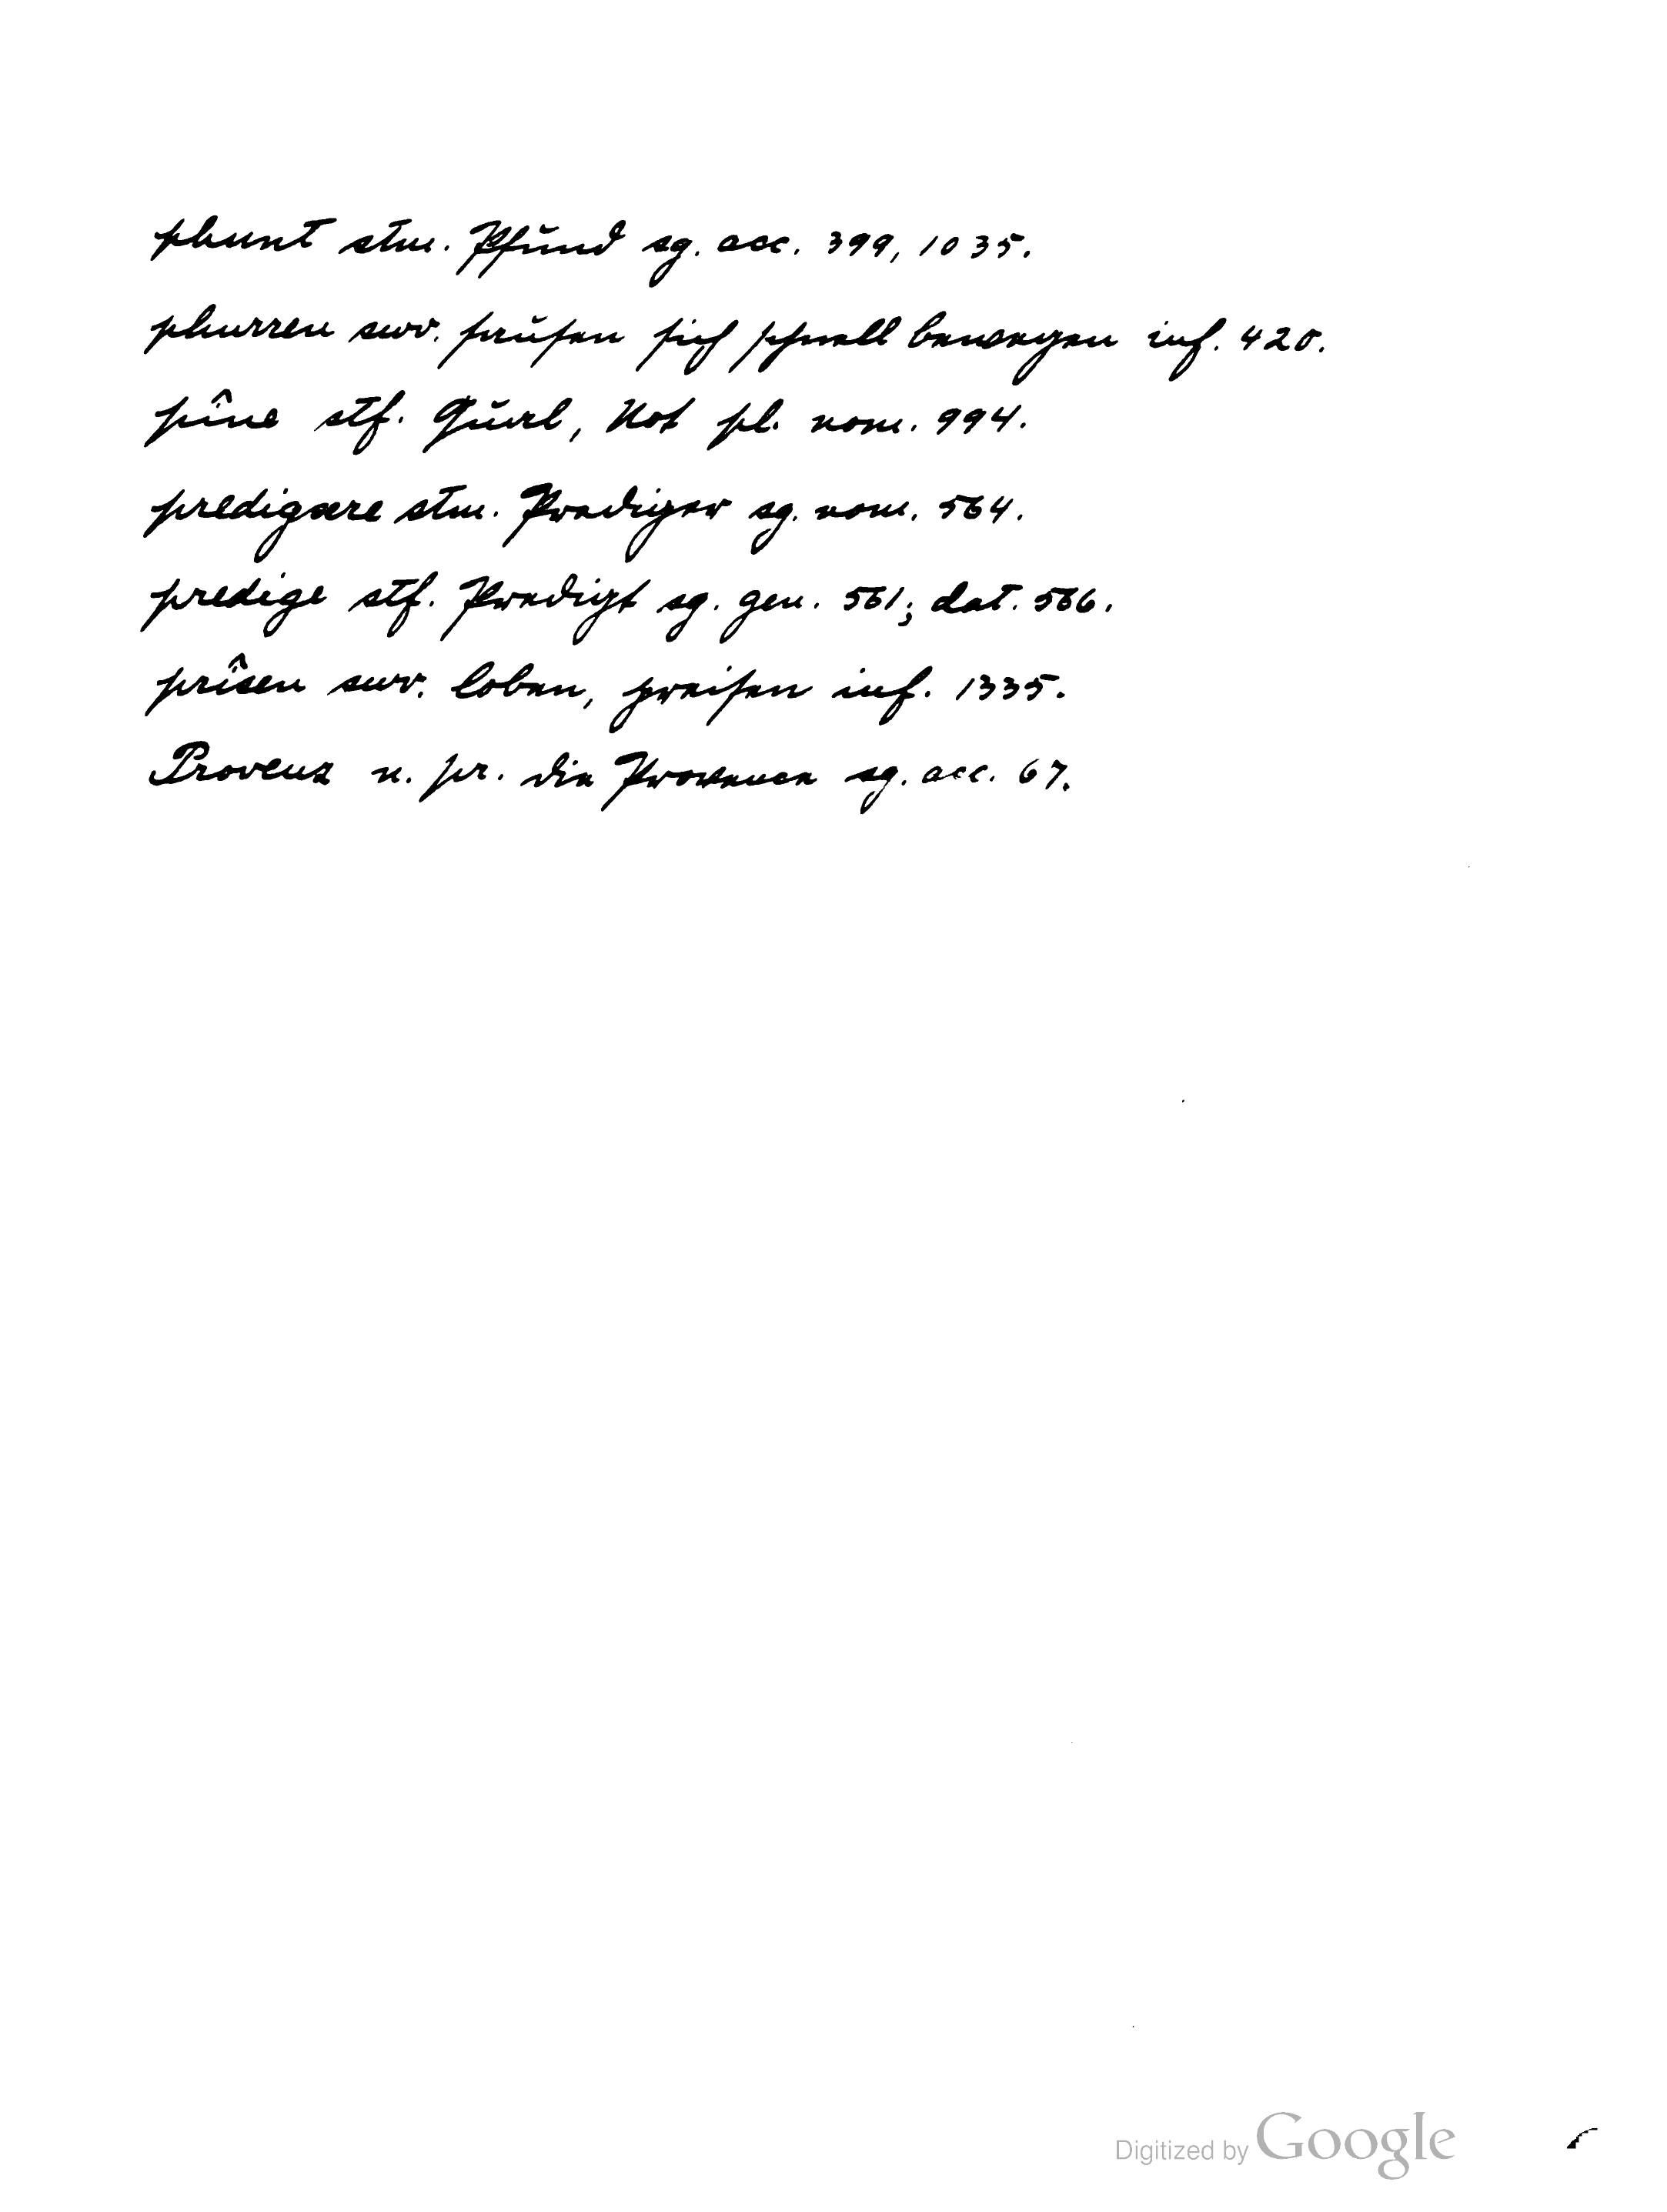 phunt stm. Pfund sg. acc. 399, 1035.
phurren swv. sausen sich schnell bewegen inf. 420.
pîne stf. Qual, Not pl. nom. 994.
predigære stm. Prediger sg. nom. 564.
predige stf. Predigt sg. gen. 561; dat. 566.
prîsen swv. loben, preisen inf. 1335.
Provenz n. pr. die Provence sg. acc. 67.
Digitized by Google